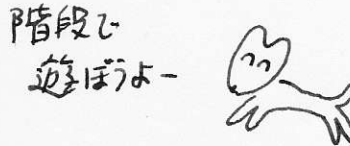 階段で
遊ぼうよー